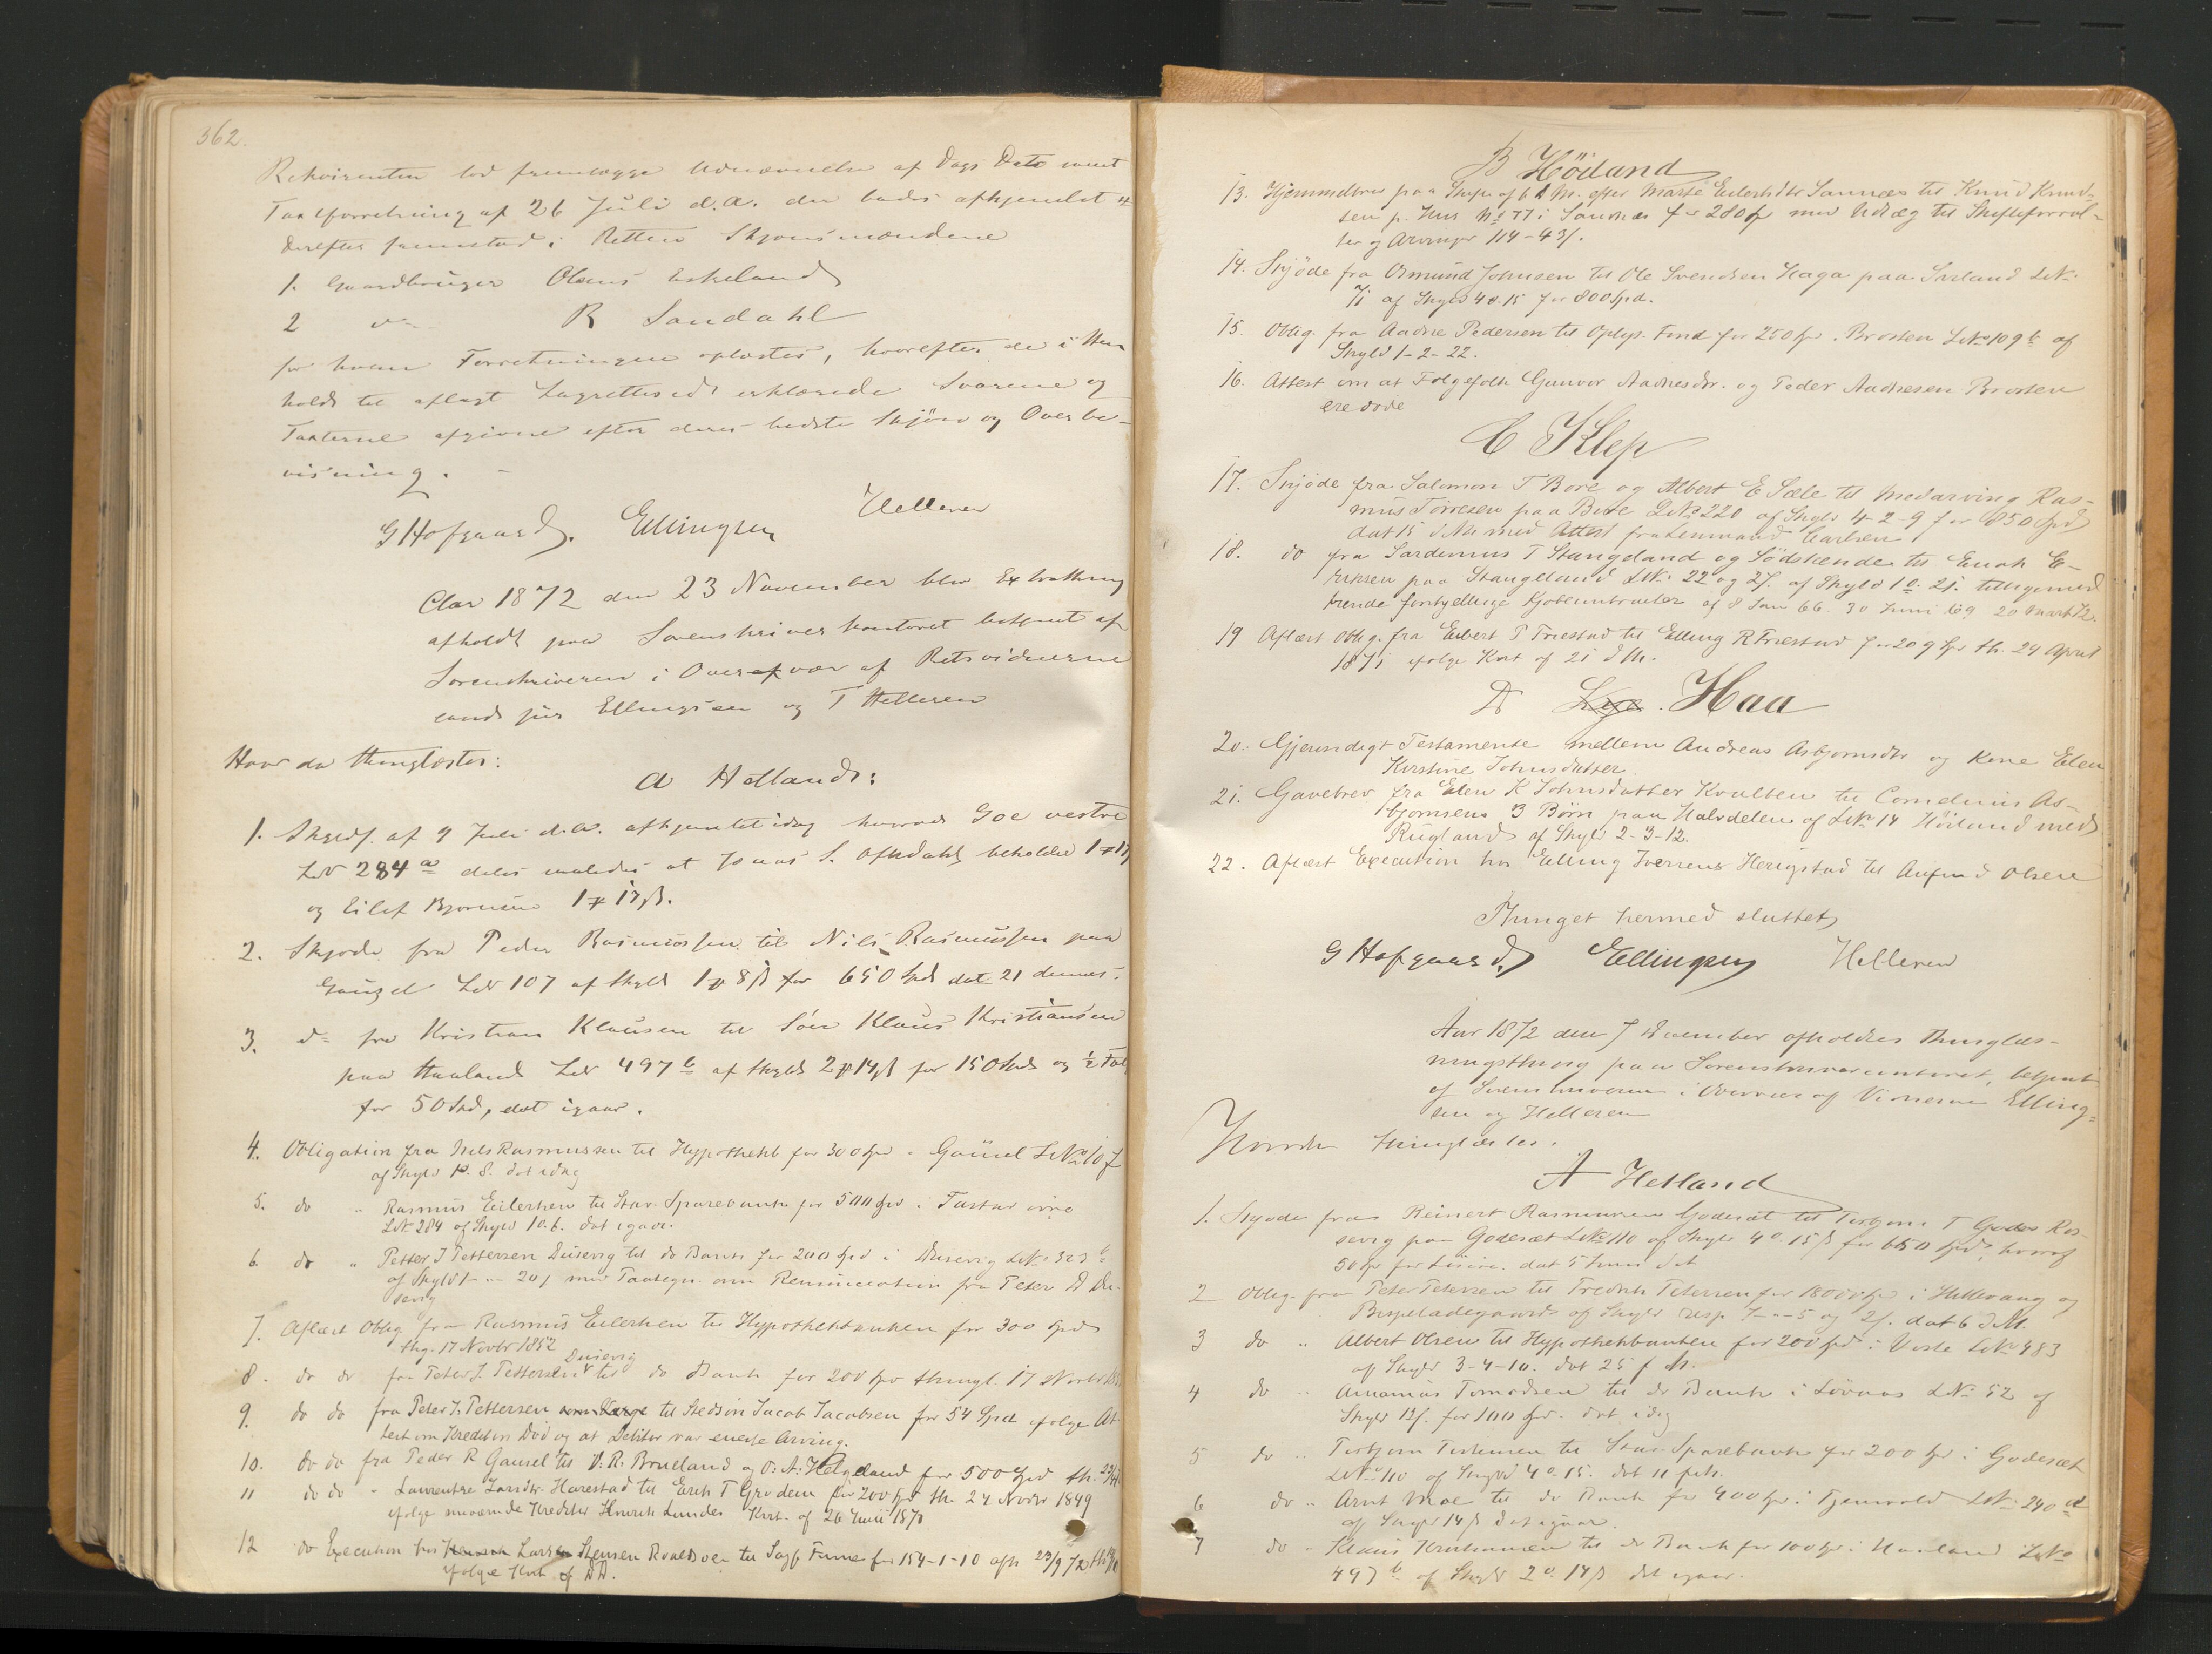 362.
Rekvirenten lod fremlægge Udnævnelse af Dags Dato samt
Taxtforretning af 26 Juli d.A. der bades afhjemlet
Derefter fremstod i Retten Skjønsmændene
1. Gaardbruger Olaus Eskeland
2 do R Sandahl
for hvem Forretningen oplæstes, hvorefter de i Hen
hold til aflagt Lagrettesed erklærede Svarene og
Taxterne afgivne efter deres bedste Skjøn og Overbe-
visning. -
G Hofgaard. Ellingsen Helleren
Aar 1872 den 23 November blev Extrathing
afholdt paa Sorenskriverkontoret betjent af
Sorenskriveren i Overvær af Retsvidnerne
cand jur Ellingsen og T Helleren
Hvor da thinglæstes:
A Hetland:
1. Skyldf. af 9 Juli d.A. afhjemlet idag hvorved Goe vestre
LN 284 a deles saaledes at Jonas S. beholder 1 17
og Eilef Bjørnsen 1 17 ß.
2. Skjøde fra Peder Rasmussen til Nils Rasmussen paa
Gausel LN 107 af Skyld 1 8 ß for 650 Spd dat 21 dennes.
3. do fra Kristian Klausen til Søn Klaus Kristiansen
paa Haaland LN 497 b af Skyld 2 14 ß for 150 Spd og
for 50 Spd, dat igaar.
4. Obligation fra Nils Rasmussen til Hypothekb for 300 Spd i Gausel LNo 107
af Skyld 1. 8. dat idag
5. do " Rasmus Eilertsen til Stav. Sparebank for 500 Spd i Tastad
LN 284 af Skyld 10.6. dat igaar.
6. do " Petter J Pettersen Dusevig til do Bank for 200 Spd i Dusevig LN 323
af Skyld 1 - 20 ß med Paategn. om Renunciation fra Peter D Du-
sevig
7. Aflæst Oblig fra Rasmus Eilertsen til Hypothekbanken for 300 Spd
thg. 17 Novbr 1852
8. do do fra Peter J. Pettersen Dusevig til do Bank for 200 Spd thingl. 17 Novbr
9. do do fra Peter J. Pettersen til Stedsøn Jacob Jacobsen for 54 Spd ifølge At-
test om Kreditors Død og at Debitor var eneste Arving.
10. do do fra Peder R Gausel til D. R. Brulland og O. A. Helgeland for 500 Spd th.
11 do do " Laurentse Larsdtr. Harestad til Erik T Grødem for 200 Spd th. 24 Novbr 1849
ifølge nuværende Kreditor Henrik Lundes Kvit. af 26 Juni 1870
12 do Execution hos Larsen Stensen til Sagf Furue for 154-1-10 afh 23/9 72
ifølge Kvit af DD.
B Höiland
13. Hjemmelbrev paa Skifte af 6 d. M. efter Marte Eilertsdtr Sannæs til Knud Knud-
sen p. Hus No 77 i Sannæs for 280 Spd med Udlæg til Skifteforval-
ter og Arvinger 114-43 ß.
14. Skjöde fra Osmund Johnsen til Ole Svendsen Haga paa Sørland LN.
71 af Skyld 4.0.15 for 800 Spd.
15. Oblig. fra Aadne Pedersen til Oplys. Fond for 250 Spd. i Brosten LNo 109 b af
Skyld 1-2-22.
16. Attest om at Følgefolk Gunvor Aadnesdtr. og Peder Aadnesen Brosten
ere døde
C Klep
17. Skjøde fra Salomon T Bore og Albert E Sæle til Medarving Ras-
mus Torresen paa Bore LNo 220 af Skyld 4-2-9 for 850 Spd
dat 15 d M. med Attest fra Lensmand Carlsen
18. do fra Sardemus T Stangeland og Södskende til Enok E-
riksen paa Stangeland LN. 22 og 27. af Skyld 1.0.21. tilligemed
trende forbyllige Kjøbekontracter af 8 Jan 66. 30 Juni 69 20 Marts 72.
19 Aflæst Oblig. fra Eivert P Friestad til Elling R Friestad for 209 Spd th. 24 April
1871 ifølge Kvit af 21 d M.
D Lye. Haa
20. Gjensidigt Testamente mellem Andreas Asbjornsdtr og Kone Elen
Kirstine Johnsdatter.
21. Gavebrev fra Elen K Johnsdatter Kvalben til Cornelius As-
bjornsens 3 Børn paa Halvdelen af LN. 14 Höiland med
Rugland af Skyld 2-3-12.
22. Aflæst Execution hos Elling Iversens Herigstad til Anfind Olsen
Thinget hermed sluttet
G Hofgaard. Ellingsen Helleren
Aar 1872 den 7 December afholdtes Thinglæs-
ningsthing paa Sorenskrivercontoret, betjent
af Sorenskriveren i Overvær af Vidnerne Elling-
sen og Helleren
Hvorda thinglæstes.
A Hetland
1. Skjøde fra Reinert Rasmussen Godeset til Torbjørn T Godes Ros-
sevig paa Godeset LNo 110 af Skyld 4.0.15 ß for 650 Spd, hvoraf
50 Spd for Løsøre. dat 5 Juni d.A
2 Oblig. fra Peter Petersen til Fredrik Petersen for 1800 Spd i Hillevaag og
Bispeladegaard af Skyld resp. 7-"-5 og 2 ß. dat 6 d.M.
3 do " Albert Olsen til Hypothekbanken for 200 Spd i Vaste LN 483
af Skyld 3-4-10. dat 25 f M.
4 do " Ananias Tomodsen til do Bank i LN. 52 af
Skyld 12 ß. for 100 Spd. dat idag
5 do " Torbjørn Torkelsen til Stav. Sparebank for 200 Spd i Godeset
LNo 110 af Skyld 4.0.15. dat 11 f M.
6 do " Arnt Moe til do Bank for 400 Spd i Tjensvold LN. 240 d
af Skyld 14 ß dat igaar.
7 do " Klaus Kristiansen til do Bank for 100 Spd i Haaland LNo
497 b af Skyld 2.0.14 ß dat igaar.